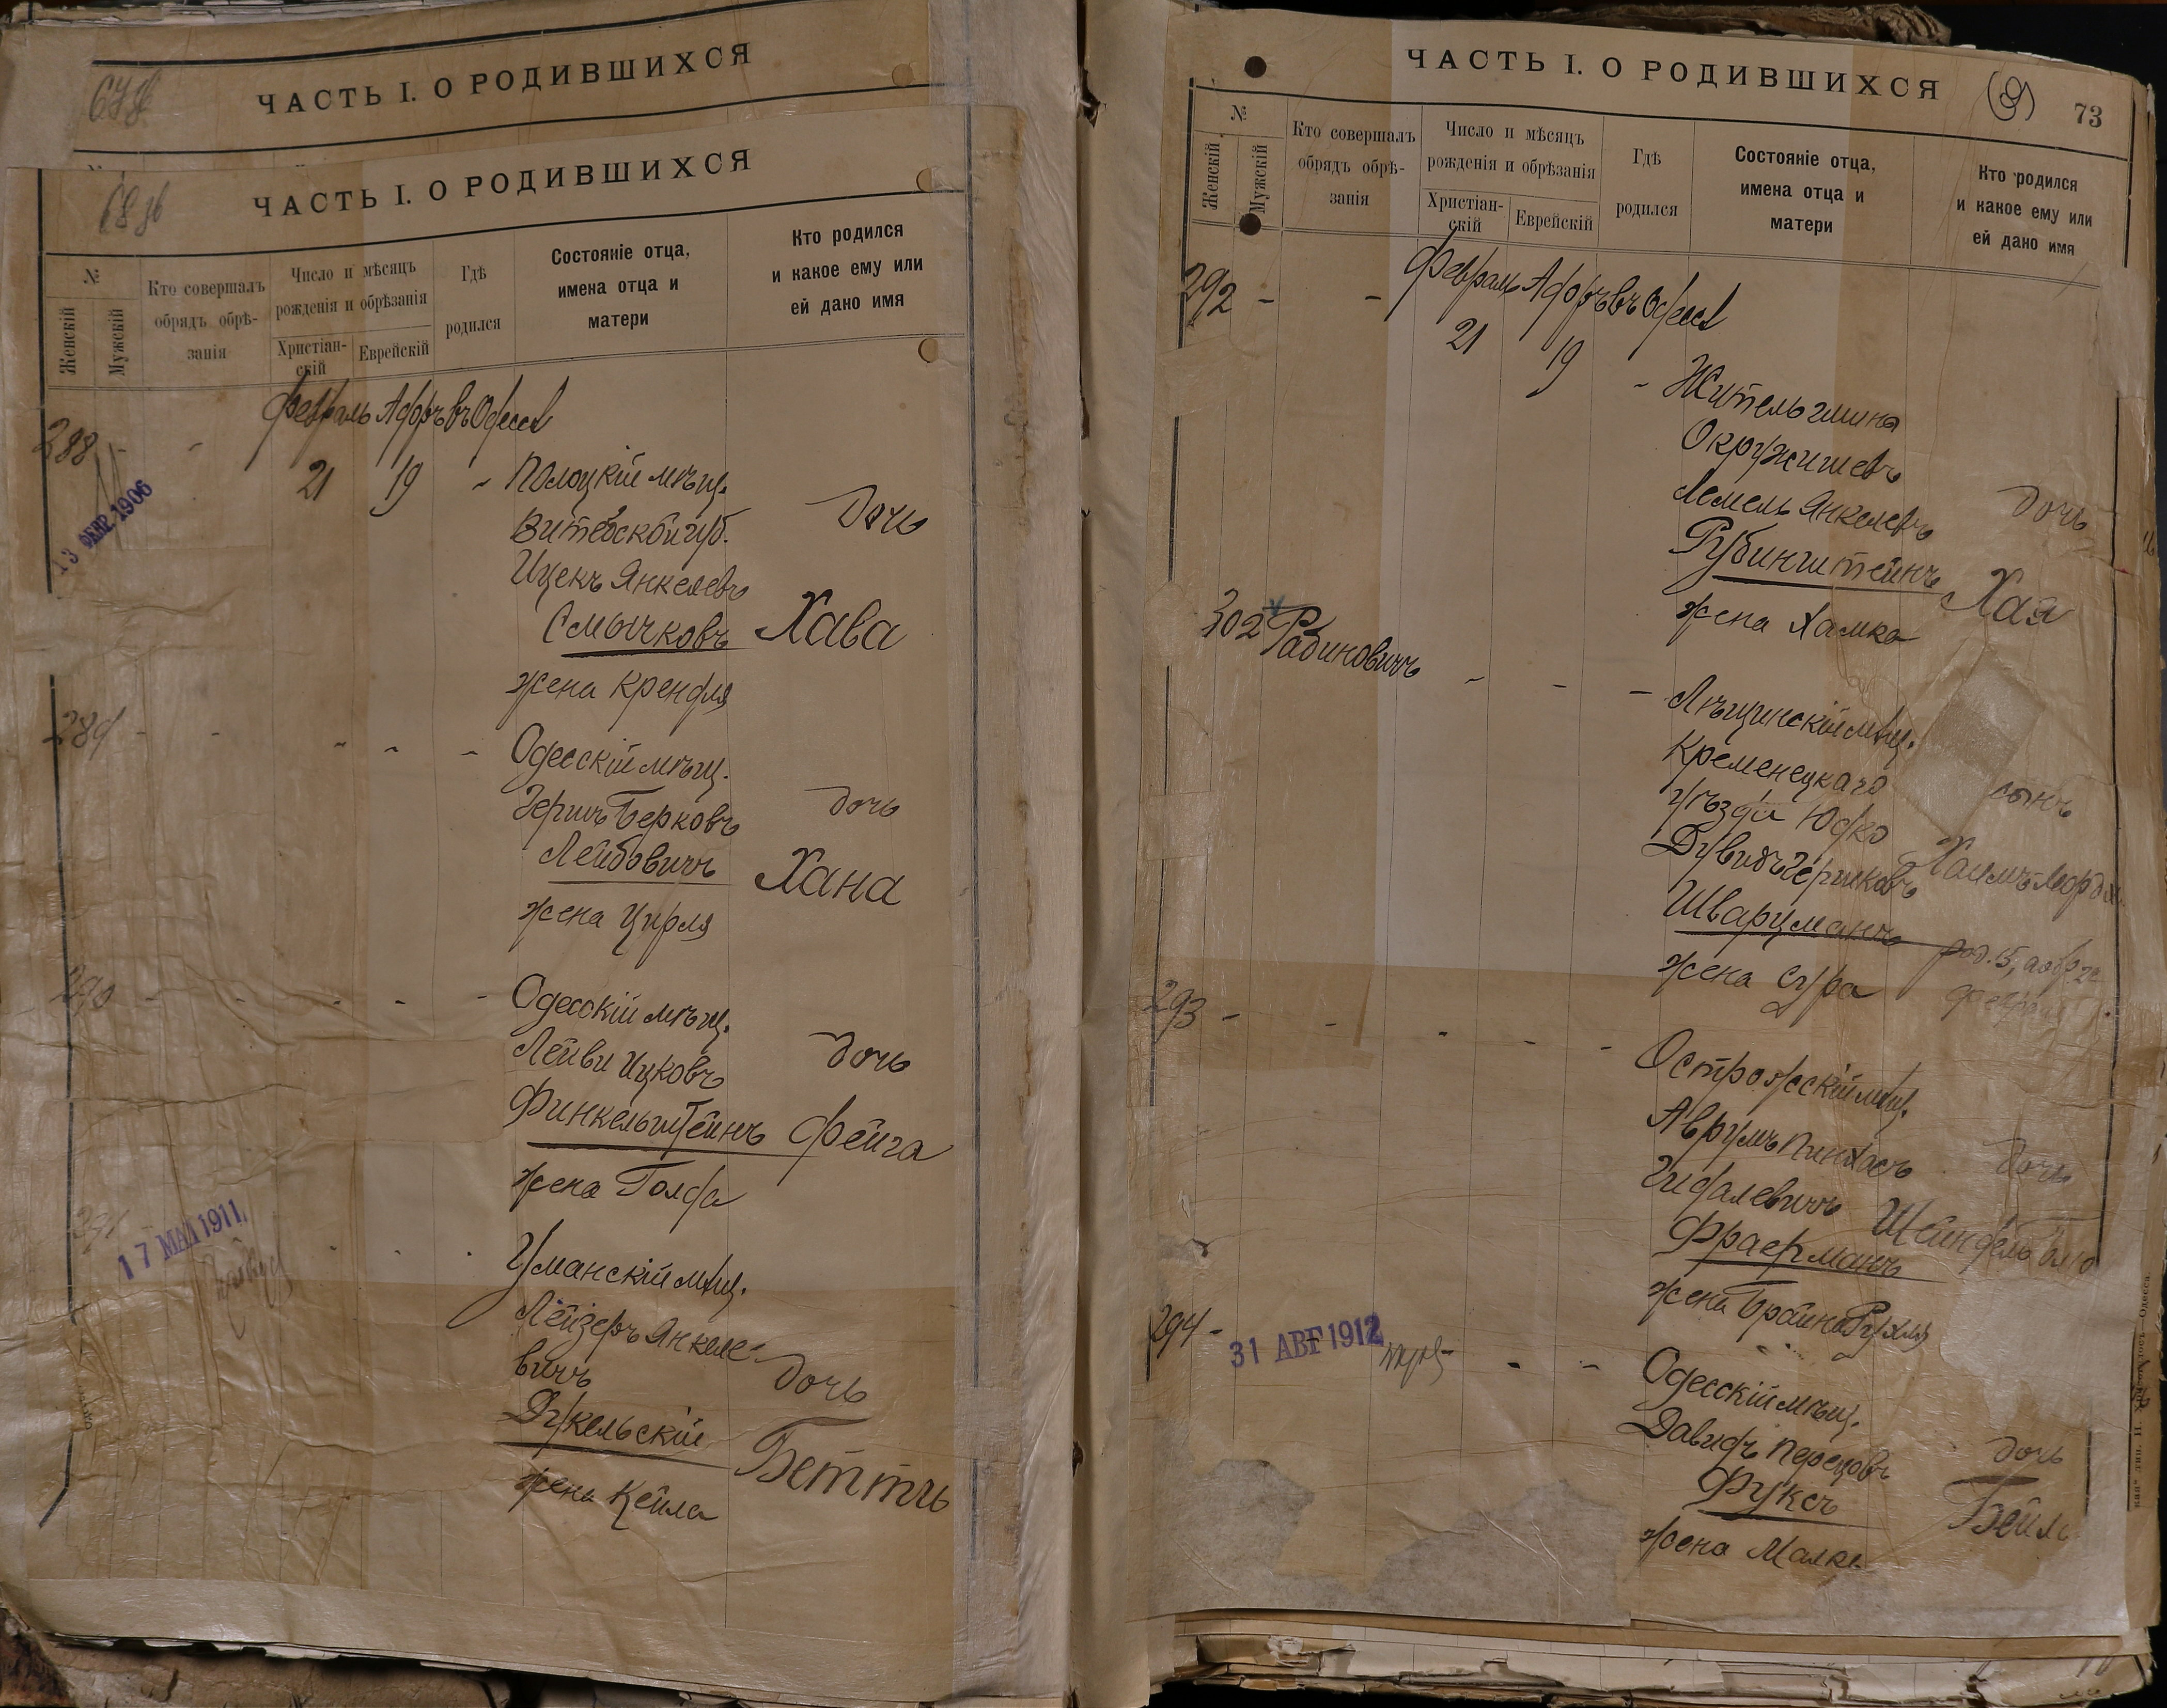 ЧАСТЬ I. О РОДИВШИХСЯ
ЧАСТЬ I. О РОДИВШИХСЯ
№
Женскій
Мужскій
Кто совершалъ
обрядъ обрѣ-
занія
Число и мѣсяцъ
рожденія и обрѣзанія
Христіан-
скій
Еврейскій
Гдѣ
родился
Состояніе отца,
имена отца и
матери
Кто родился
и какое ему или
ей дано имя
Февраль Адоръ въ Одессѣ
288 - -
21 19 - Полоцкій мѣщ.
13 ФЕВР. 1906
Витебской губ.
дочь
Ицекъ Янкелевъ
Смычковъ Хава
жена Крендля
289 - - - - - Одесскій мѣщ.
Гершъ Берковъ
дочь
Лейбовичъ Хана
жена Цирля
290 - - - - - Одесскій мѣщ.
Лейви Ицковъ
дочь
Финкельштейнъ Фейга
жена Голда
291
17 МАЯ 1911
Уманскій мѣщ.
Лейзеръ Янкеле-
вичъ
дочь
Дукельскій
Бетть
жена Кейла
ЧАСТЬ I. О РОДИВШИХСЯ
73
№
Женскій
Мужскій
Кто совершалъ
обрядъ обрѣ-
занія
Число и мѣсяцъ
рожденія и обрѣзанія
Христіан-
скій
Еврейскій
Гдѣ
родился
Состояніе отца,
имена отца и
матери
Кто родился
и какое ему или
ей дано имя
292 - - Февраль Адоръ въ Одессѣ
21 19 -
Житель
Лемель Янкелевъ
дочь
Рубинштейнъ Хая
жена Хамка
302 Рабиновичъ - - -
мѣщ.
Кременецкаго
уѣзда Юдко
сынъ
Дувидъ Гершковъ Хаимъ
Шварцманъ
жена Сура
род. 15, а обр. 22
293 - - - - -
Острожскій мѣщ.
Аврумъ Пинхасъ
дочь
Фраерманъ
Шейндель
жена
294 -
31 АВГ 1912
- -
Одесскій мѣщ.
Давидъ Перецовъ
дочь
Фуксъ
жена